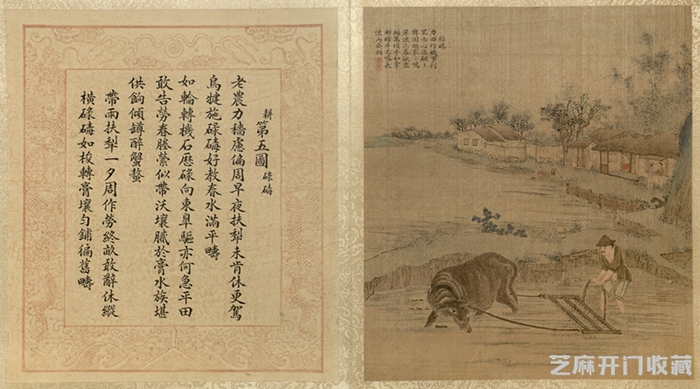 耕 第五圖 碌碡
老農力穡慮偏周早夜扶犁未肯休更駕
烏犍施碌碡好教春水滿平疇
如輪轉機石歷碌向東皐驅亦何急平田
敢告勞春塍縈似帶沃壤膩於膏水族堪
供餉傾罇醉蟹螯
帶雨扶犁一夕周作勞終畝敢辭休縱
橫碌碡如梭轉膏壤勻鋪徧舊疇
碌碡
芝麻开门收藏